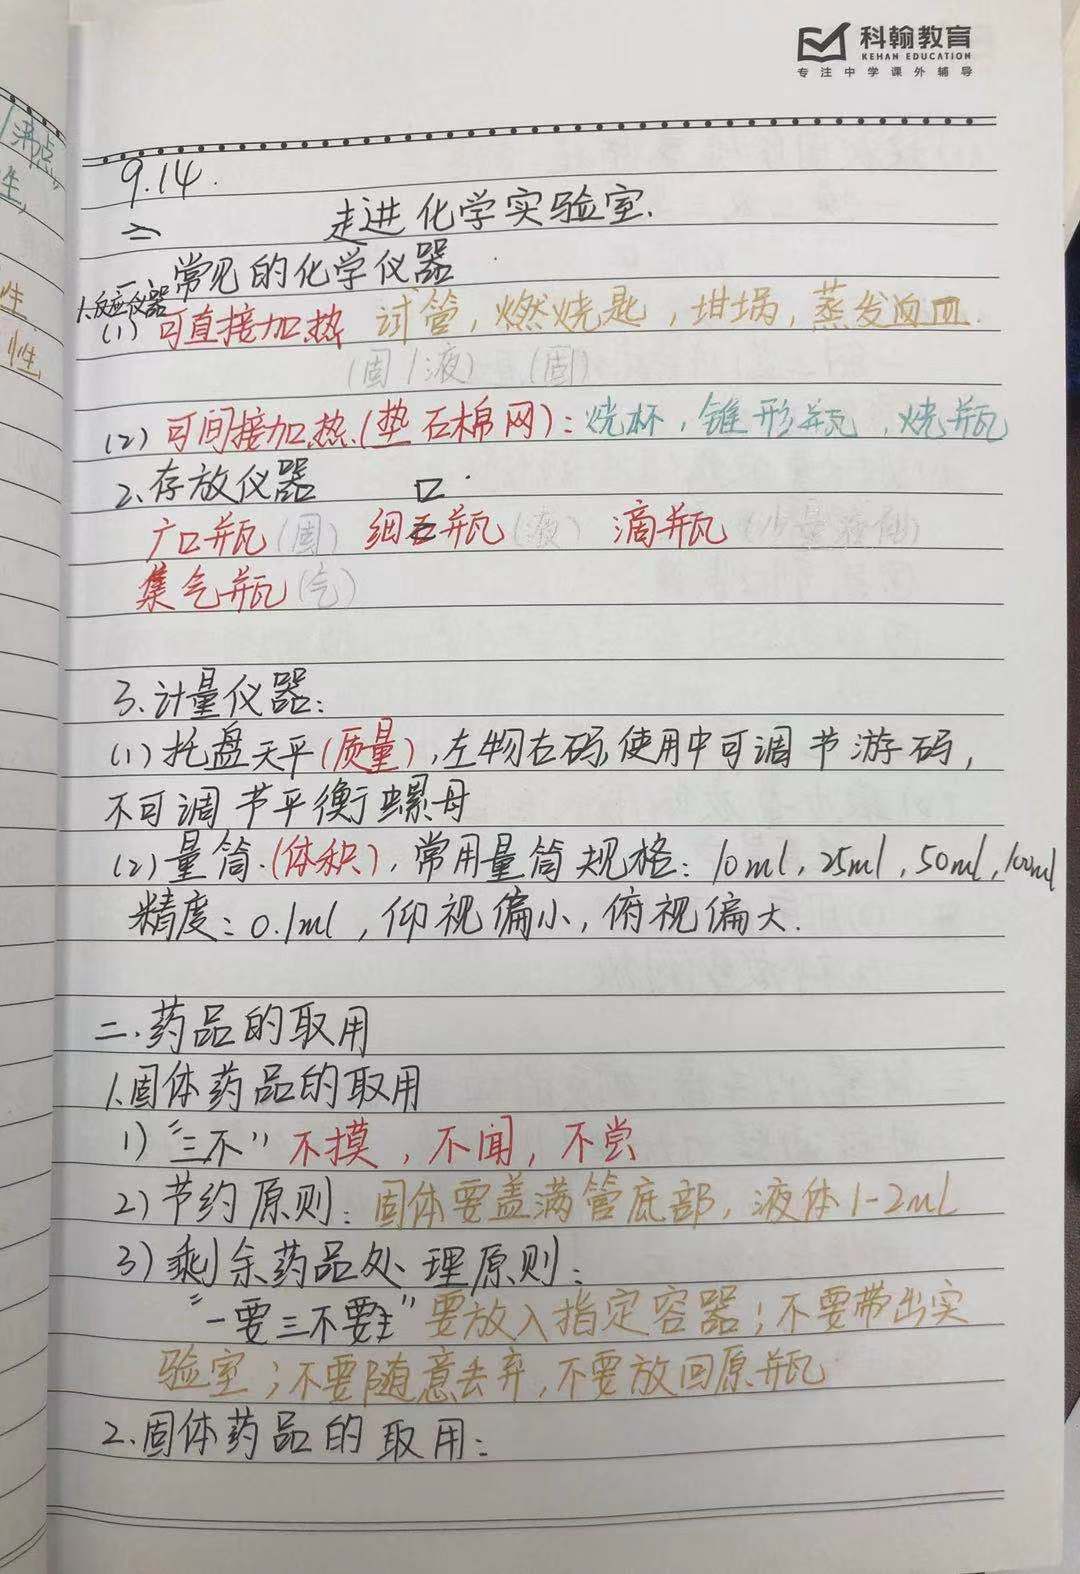 科翰教育
KEHAN EDUCATION
专注中学课外辅导
沸点
生,
性
性,
9.14.
二 走进化学实验室.
一、常见的化学仪器
1.反应仪器
(1) 可直接加热 试管, 燃烧匙, 坩埚, 蒸发皿.
(固/液) (固)
(2) 可间接加热(垫石棉网): 烧杯, 锥形瓶, 烧瓶
2.存放仪器 口
广口瓶(固) 细口瓶(液) 滴瓶 (少量液体)
集气瓶(气)
3.计量仪器:
(1)托盘天平(质量),左物右码,使用中可调节游码,
不可调节平衡螺母
(2)量筒.(体积),常用量筒规格: 10ml, 25ml, 50ml, 100ml
精度: 0.1ml, 仰视偏小, 俯视偏大.
二.药品的取用
1.固体药品的取用
1) “三不” 不摸, 不闻, 不尝
2)节约原则: 固体要盖满管底部, 液体1-2ml
3)剩余药品处理原则:
“一要三不要” 要放入指定容器; 不要带出实
验室; 不要随意丢弃, 不要放回原瓶
2.固体药品的取用: